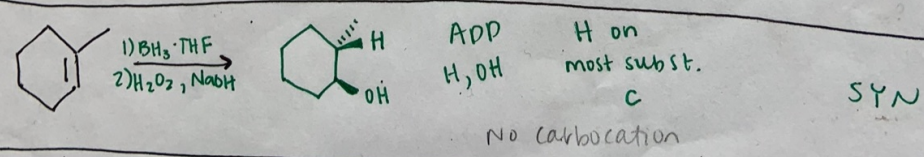 1) BH3·THF
2) H2O2, NaOH
H
OH
ADD
H, OH
H on
most subst.
C
SYN
No carbocation